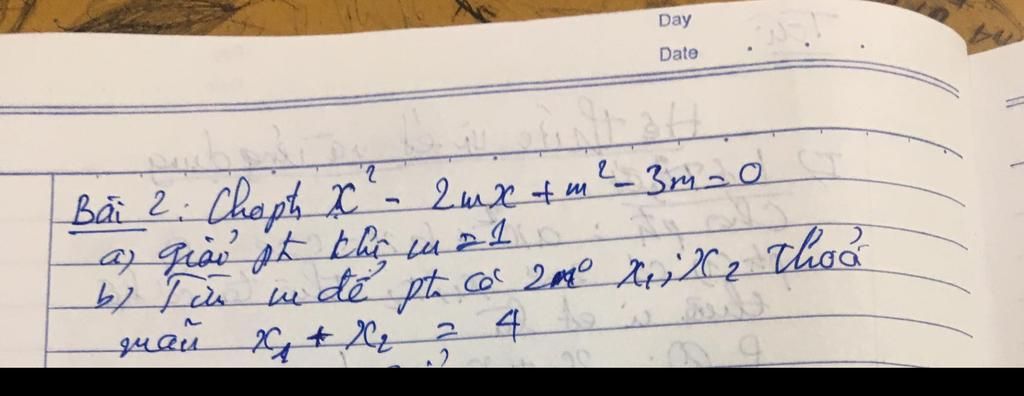 Day
Date
Bài 2: Cho pt x² - 2mx + m² - 3m = 0
a) giải pt khi m = 1
b) Tìm m để pt có 2 n⁰ x₁; x₂ thoả
mãn x₁ + x₂ = 4